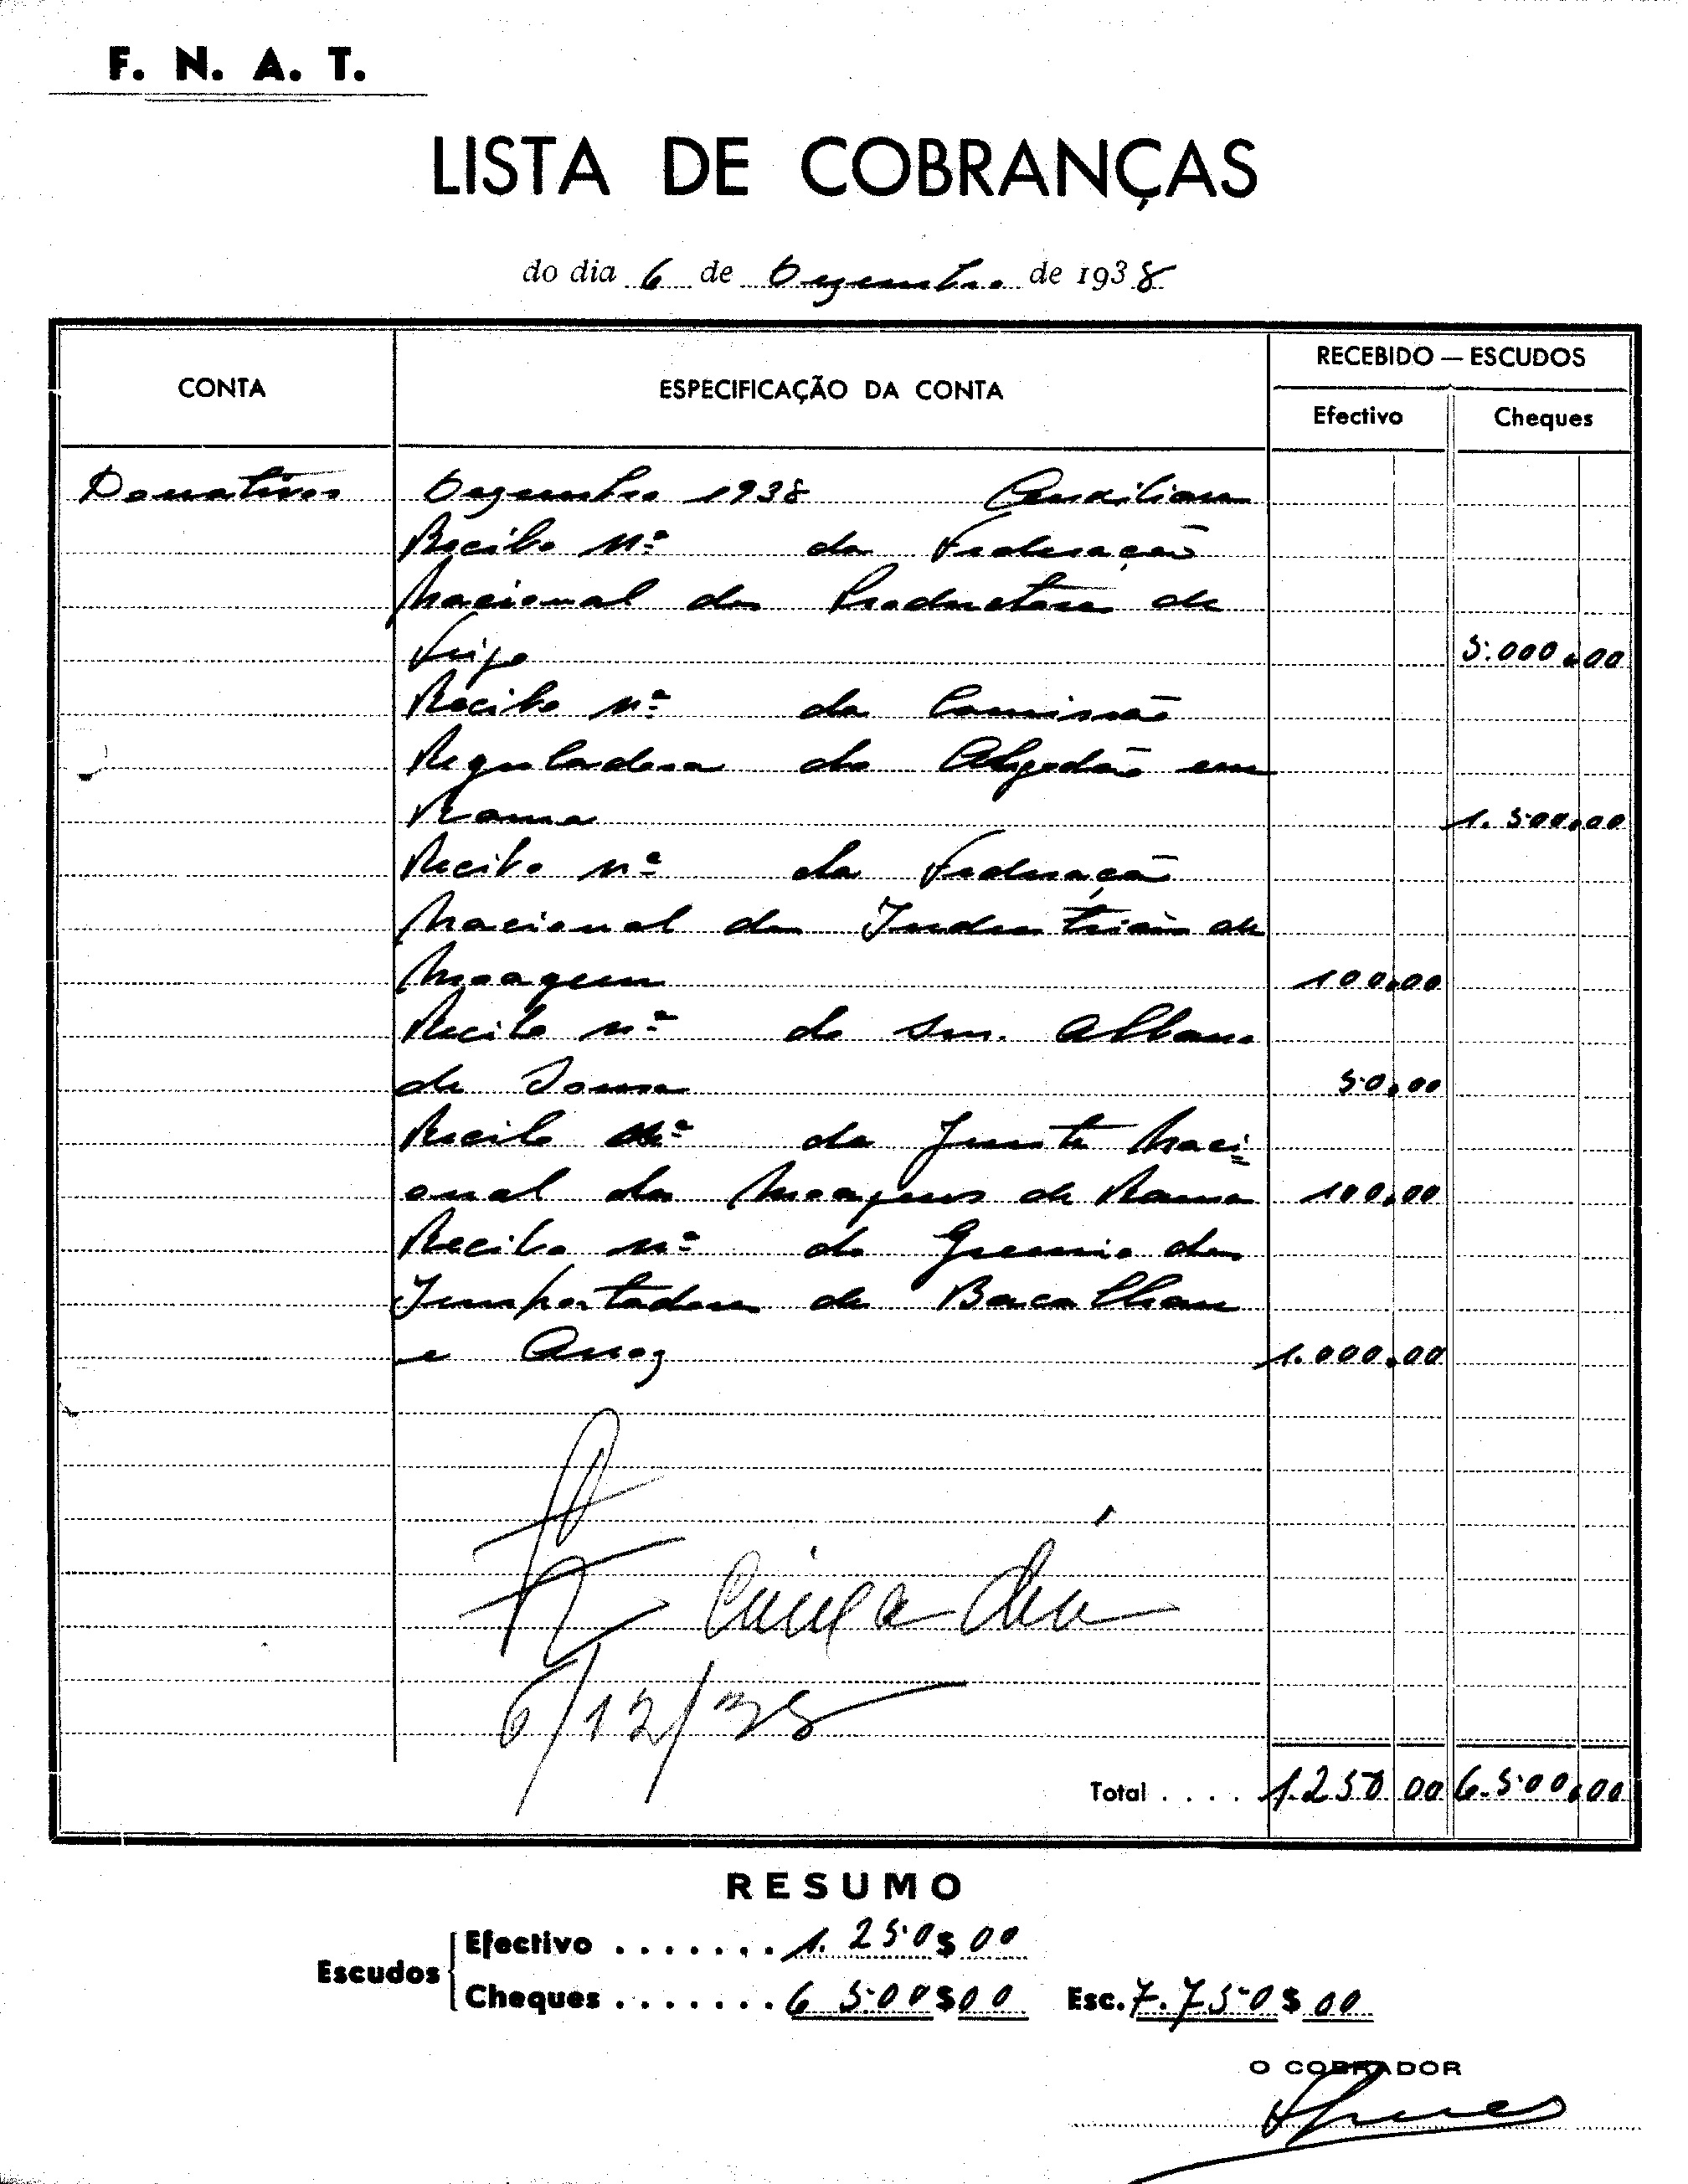 F. N. A. T.
LISTA DE COBRANÇAS
do dia 6 de Dezembro de 1938
CONTA
ESPECIFICAÇÃO DA CONTA
RECEBIDO — ESCUDOS
Efectivo
Cheques
Donativos Dezembro 1938
Recibo Nº da Federação
Nacional dos Productores de
Trigo 5.000.00
Recibo nº da Comissão
Reguladora do Algodão em
Rama 1.500.00
Recibo nº da Federação
Nacional dos Industriais de
Moagem 100.00
Recibo nº do Snr. Albano
de Sousa 50.00
Recibo nº da Junta Naci
onal das Moagens de Rama 100.00
Recibo nº do Gremio dos
Importadores de Bacalhau
e Arroz 1.000.00
6/12/38
Total .... 1.250 00 6.500.00
RESUMO
Escudos
Efectivo ....... 1.250$00
Cheques ....... 6500$00 Esc. 7.750$00
O COBRADOR